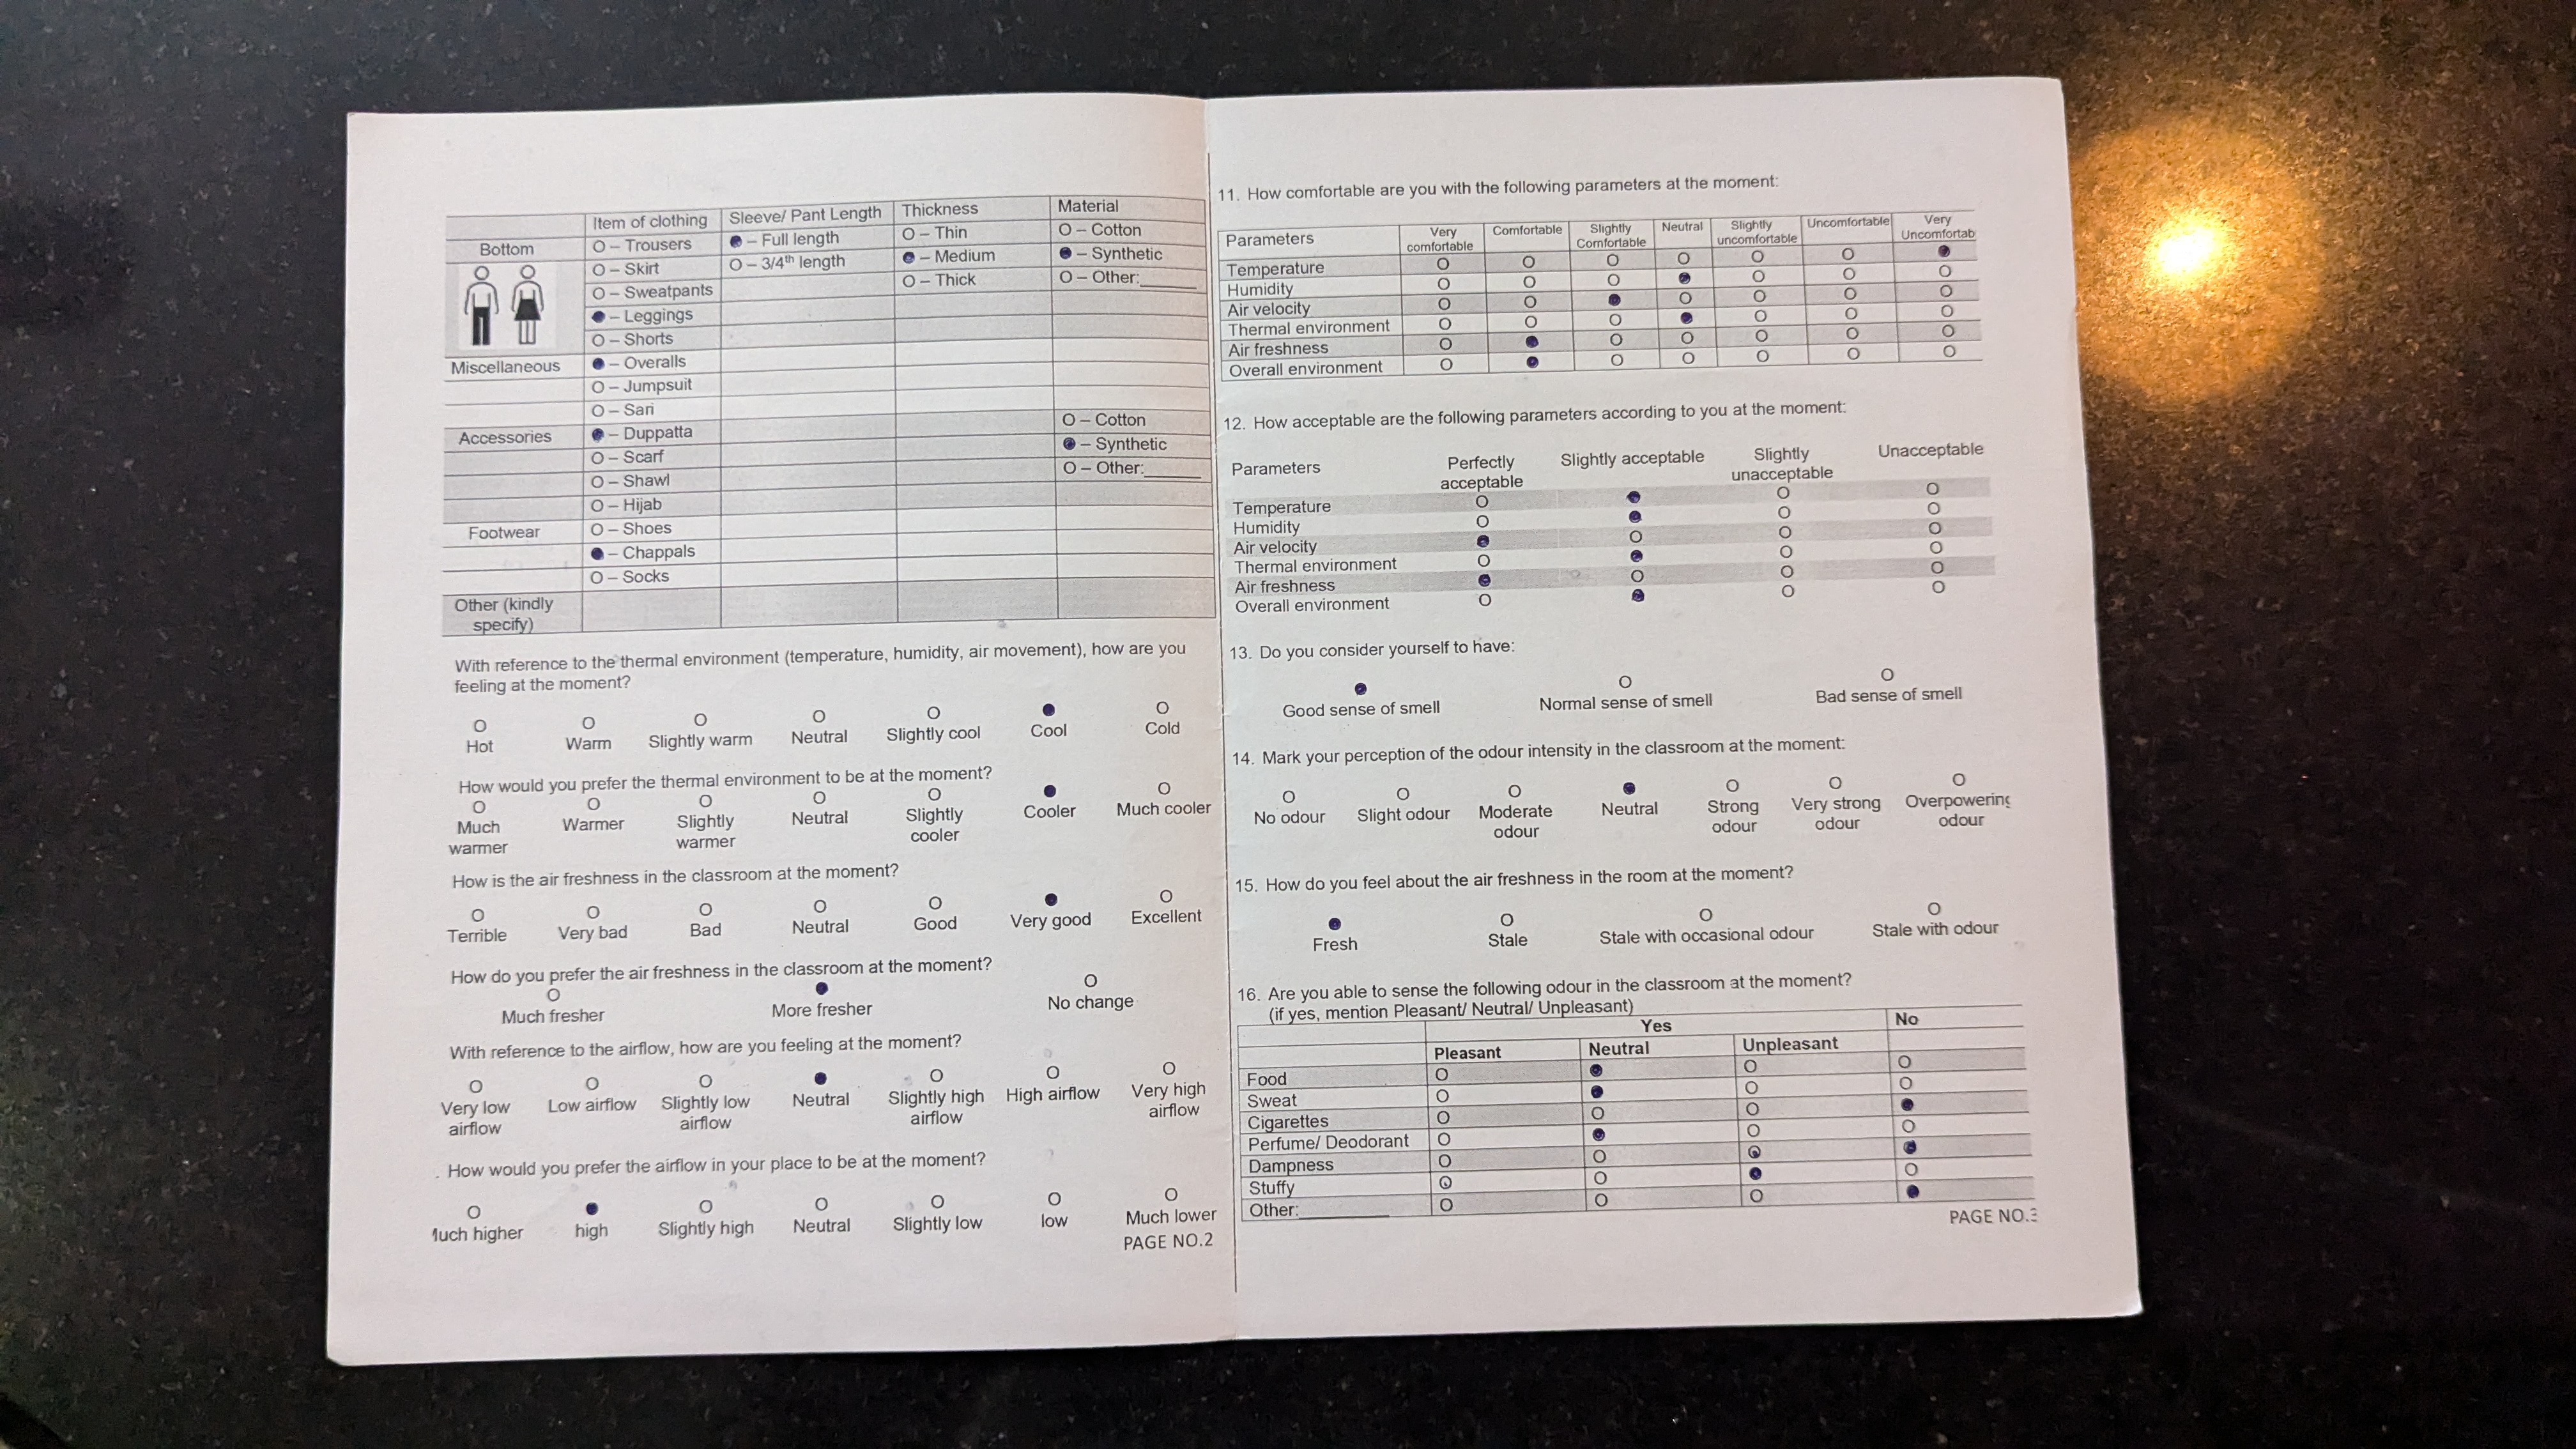 Item of clothing Sleeve/ Pant Length Thickness Material
Bottom O – Trousers ● – Full length O – Thin O – Cotton
O – Skirt O – 3/4th length ● – Medium ● – Synthetic
O – Sweatpants O – Thick O – Other:______
● – Leggings
O – Shorts
Miscellaneous ● – Overalls
O – Jumpsuit
O – Sari
Accessories ● – Duppatta O – Cotton
O – Scarf ● – Synthetic
O – Shawl O – Other:______
O – Hijab
Footwear O – Shoes
● – Chappals
O – Socks
Other (kindly
specify)
With reference to the thermal environment (temperature, humidity, air movement), how are you
feeling at the moment?
O O O O O ● O
Hot Warm Slightly warm Neutral Slightly cool Cool Cold
How would you prefer the thermal environment to be at the moment?
O O O O O ● O
Much warmer Warmer Slightly warmer Neutral Slightly cooler Cooler Much cooler
How is the air freshness in the classroom at the moment?
O O O O O ● O
Terrible Very bad Bad Neutral Good Very good Excellent
How do you prefer the air freshness in the classroom at the moment?
O ● O
Much fresher More fresher No change
With reference to the airflow, how are you feeling at the moment?
O O O ● O O O
Very low airflow Low airflow Slightly low airflow Neutral Slightly high airflow High airflow Very high airflow
. How would you prefer the airflow in your place to be at the moment?
O ● O O O O O
luch higher high Slightly high Neutral Slightly low low Much lower
PAGE NO.2
11. How comfortable are you with the following parameters at the moment:
Parameters Very comfortable Comfortable Slightly Comfortable Neutral Slightly uncomfortable Uncomfortable Very Uncomfortab
Temperature O O O O O O ●
Humidity O O O ● O O O
Air velocity O O ● O O O O
Thermal environment O O O ● O O O
Air freshness O ● O O O O O
Overall environment O ● O O O O O
12. How acceptable are the following parameters according to you at the moment:
Parameters Perfectly acceptable Slightly acceptable Slightly unacceptable Unacceptable
Temperature O ● O O
Humidity O ● O O
Air velocity ● O O O
Thermal environment O ● O O
Air freshness ● O O O
Overall environment O ● O O
13. Do you consider yourself to have:
● O O
Good sense of smell Normal sense of smell Bad sense of smell
14. Mark your perception of the odour intensity in the classroom at the moment:
O O O ● O O O
No odour Slight odour Moderate odour Neutral Strong odour Very strong odour Overpowering odour
15. How do you feel about the air freshness in the room at the moment?
● O O O
Fresh Stale Stale with occasional odour Stale with odour
16. Are you able to sense the following odour in the classroom at the moment?
(if yes, mention Pleasant/ Neutral/ Unpleasant)
Yes No
Pleasant Neutral Unpleasant
Food O ● O O
Sweat O ● O O
Cigarettes O O O ●
Perfume/ Deodorant O ● O O
Dampness O O O ●
Stuffy O O ● O
Other:__________ O O O ●
PAGE NO.3